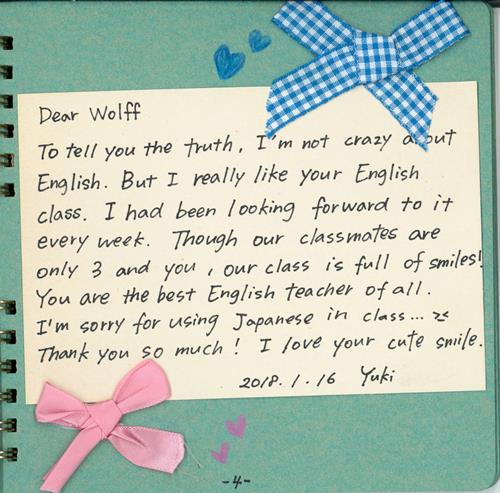 Dear Wolff
To tell you the truth, I'm not crazy about
English. But I really like your English
class. I had been looking forward to it
every week. Though our classmates are
only 3 and you, our class is full of smiles!
You are the best English teacher of all.
I'm sorry for using Japanese in class... ><
Thank you so much! I love your cute smile.
2018.1.16 Yuki
-4-